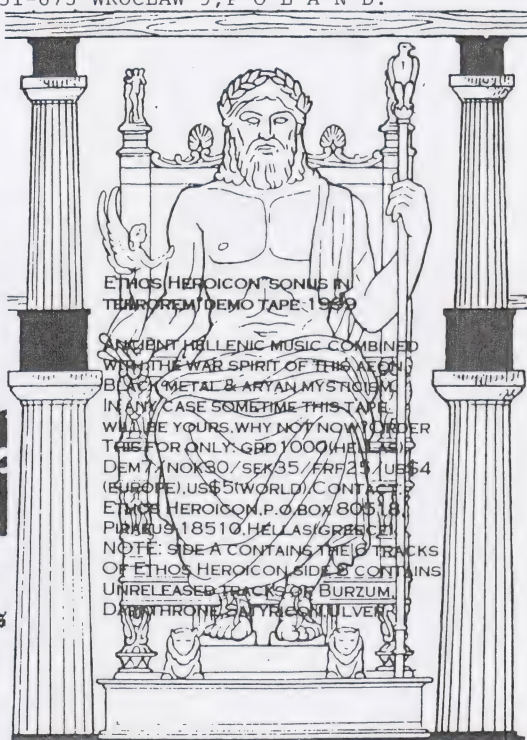 51-673 WROCLAW 9, P O L A N D.
ETHOS HEROICON "SONUS IN
TERROREM" DEMO TAPE 1999
ANCIENT HELLENIC MUSIC COMBINED
WITH THE WAR SPIRIT OF THIS AEON,
BLACK METAL & ARYAN MYSTICISM.
IN ANY CASE SOMETIME THIS TAPE
WILL BE YOURS. WHY NOT NOW? ORDER
THIS FOR ONLY: GRD 1000(HELLAS)
DEM7/NOK30/SEK35/FRF25/US$4
(EUROPE), US$5(WORLD). CONTACT:
ETHOS HEROICON, P.O.BOX 80518,
PIRAEUS 18510, HELLAS(GREECE).
NOTE: SIDE A CONTAINS THE 6 TRACKS
OF ETHOS HEROICON SIDE B CONTAINS
UNRELEASED TRACKS OF BURZUM,
DARKTHRONE, SATYRICON, ULVER.